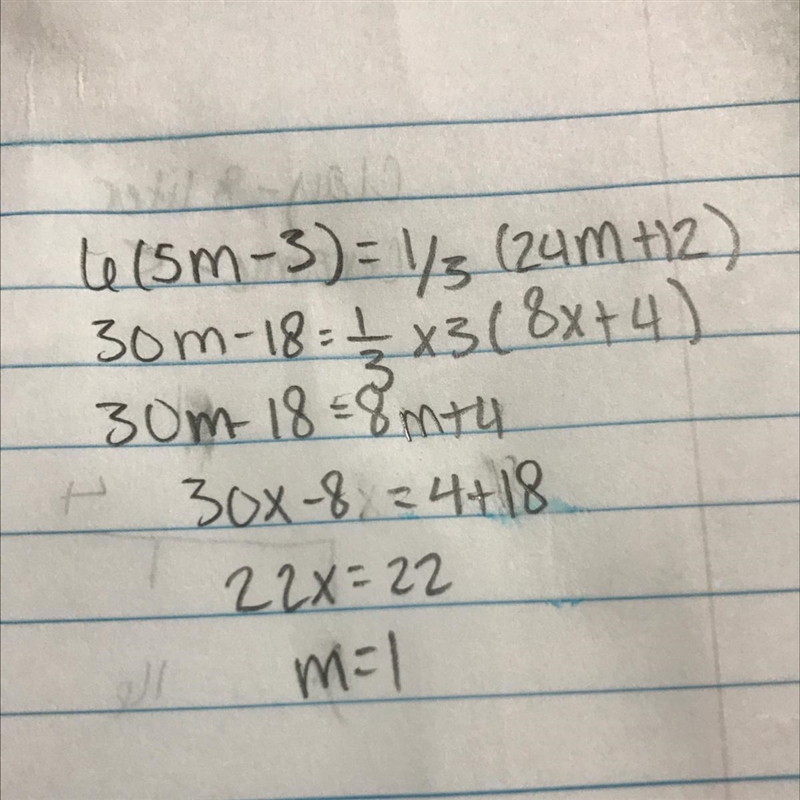 6(5m-3)=1/3 (24m+12)
30m-18=1/3 x3(8x+4)
30m-18=8m+4
30x-8x=4+18
22x=22
m=1